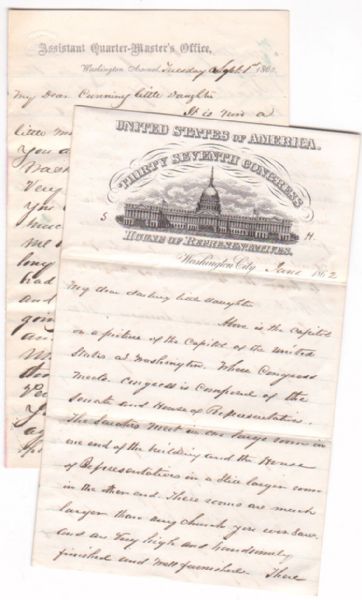 Assistant Quarter-Master's Office,
Washington Arsenal, Tuesday Sept 1st 186
My Dear Cunning little daughter
It is now a
little
You a
Very
you
much
me
long
had
and
going
an
UNITED STATES OF AMERICA.
THIRTY SEVENTH CONGRESS
S H
HOUSE OF REPRESENTATIVES.
Washington City, June 1862
My dear darling little daughter
Here is the Capitol
or a picture of the Capitol of the United
States at Washington. Where Congress
meets Congress is Composed of the
Senate and House of Representatives.
The Senators meet in one large room in
one end of the building and the House
of Representatives in a still larger room
in the other end. These rooms are much
larger than any church you ever saw.
And are very high and handsomely
finished and well furnished. There